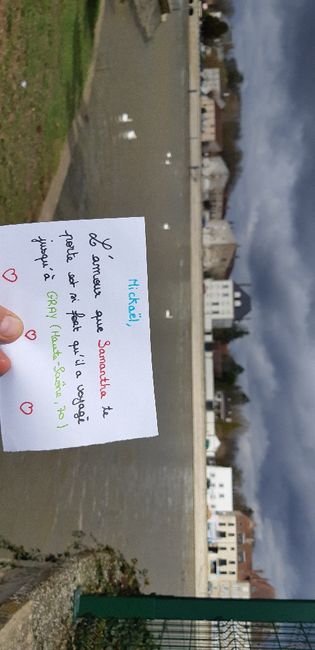 Mickaël,
L'amour que Samantha te
porte est si fort qu'il a voyagé
jusqu'à GRAY (Haute-Saône, 70)